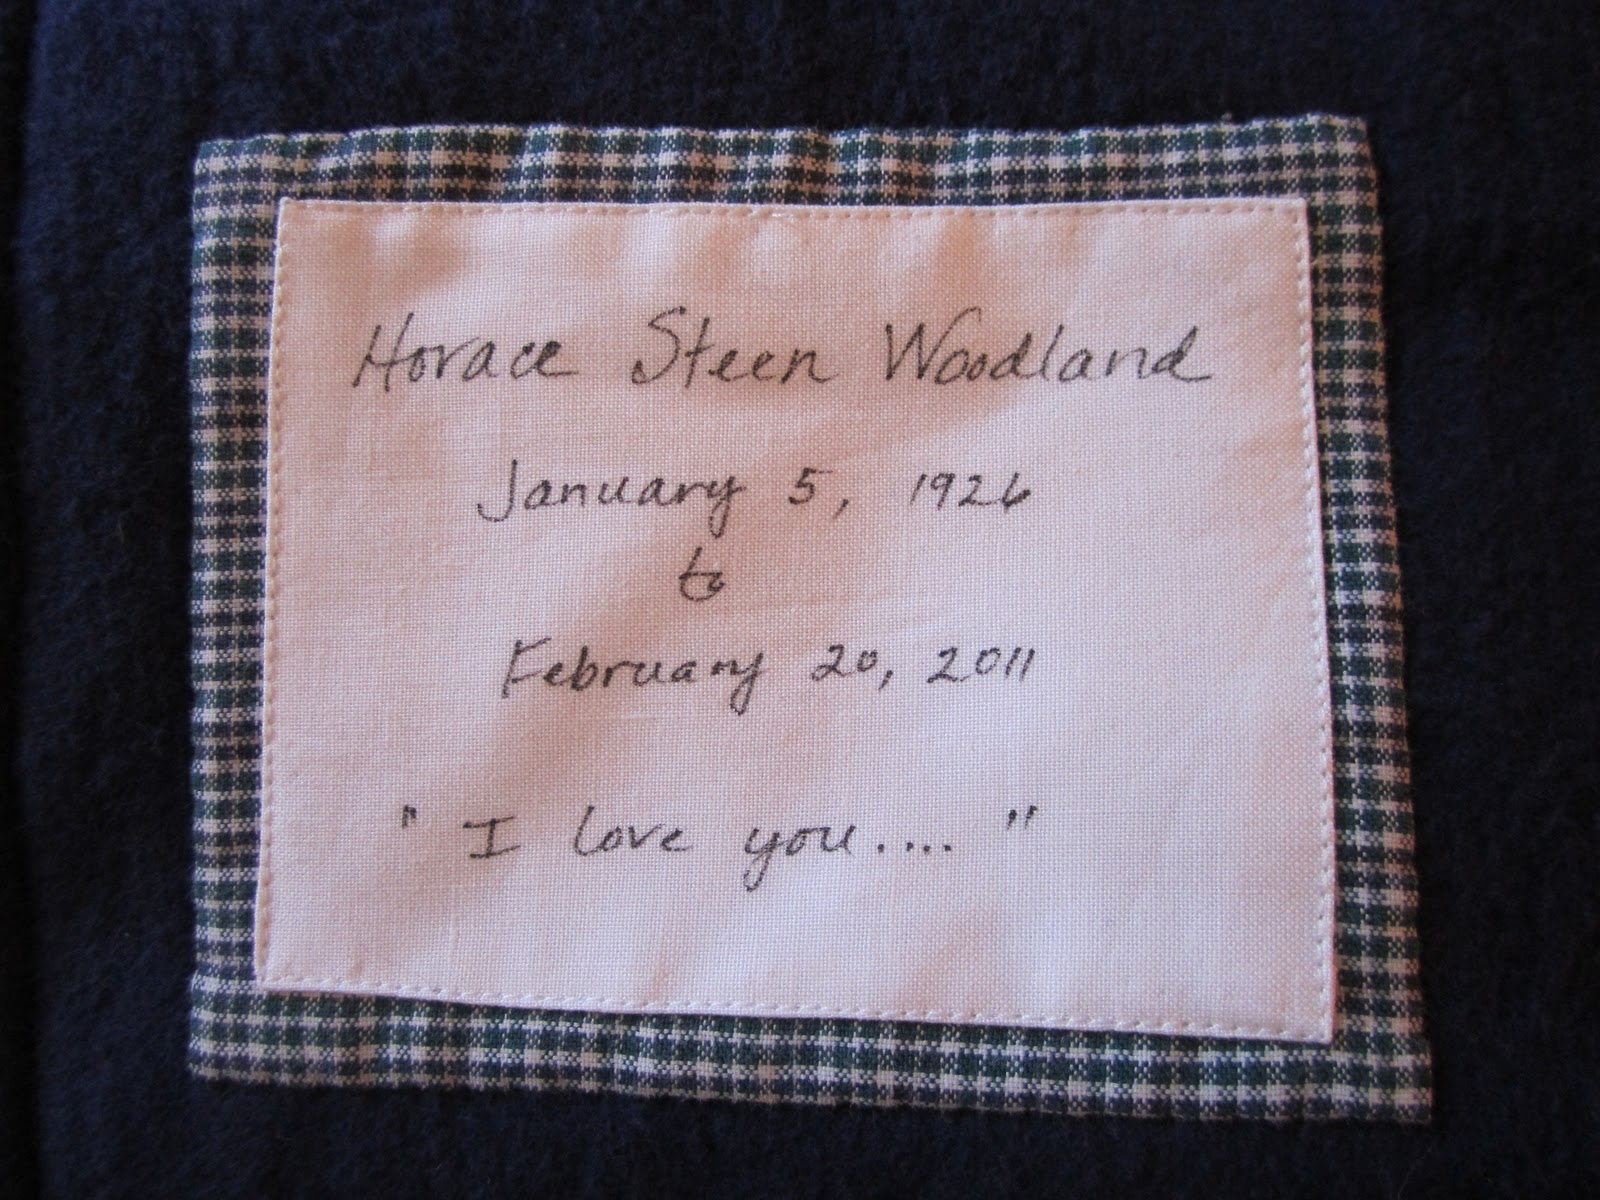 Horace Steen Woodland
January 5, 1926
to
February 20, 2011
" I love you.... "